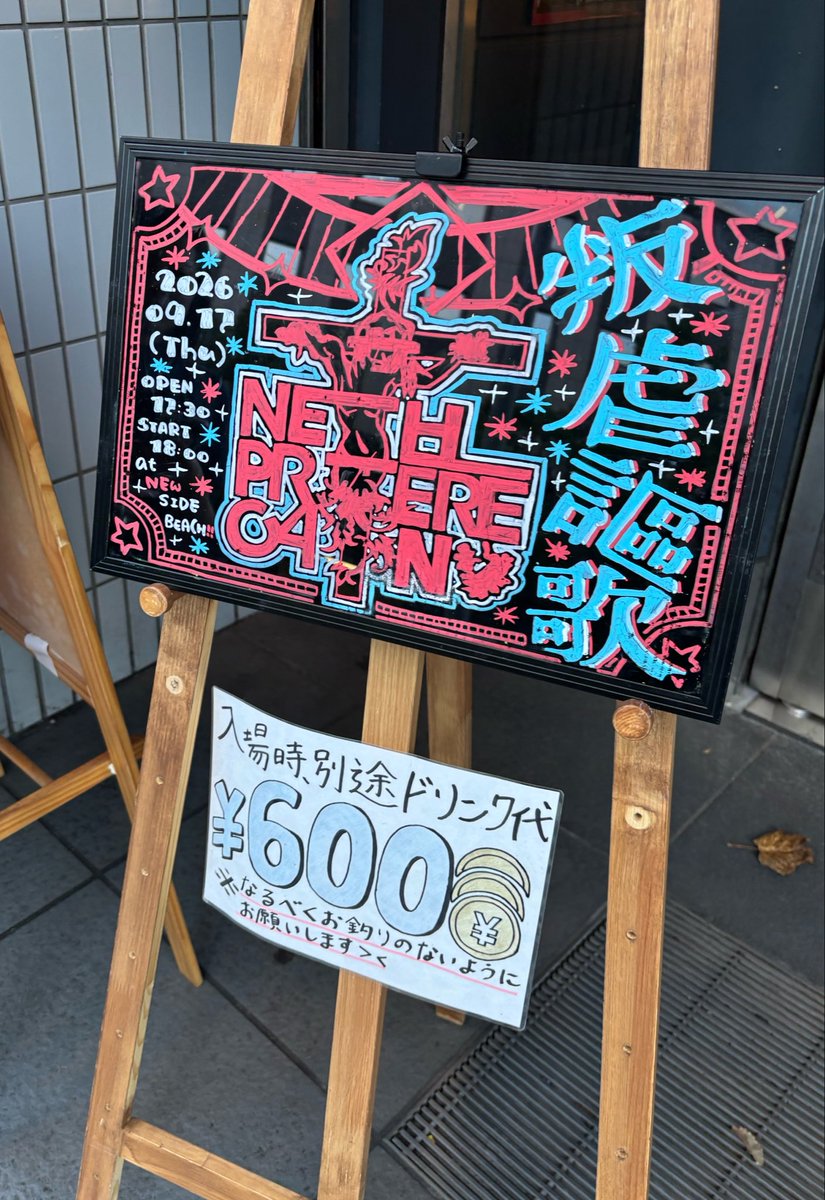 2026
09.17
(Thu)
OPEN
17:30
START
18:00
at
NEW
SIDE
BEACH!!
叛虐謳歌
入場時、別途ドリンク代
¥600
¥
※なるべくお釣りのないように
お願いします><